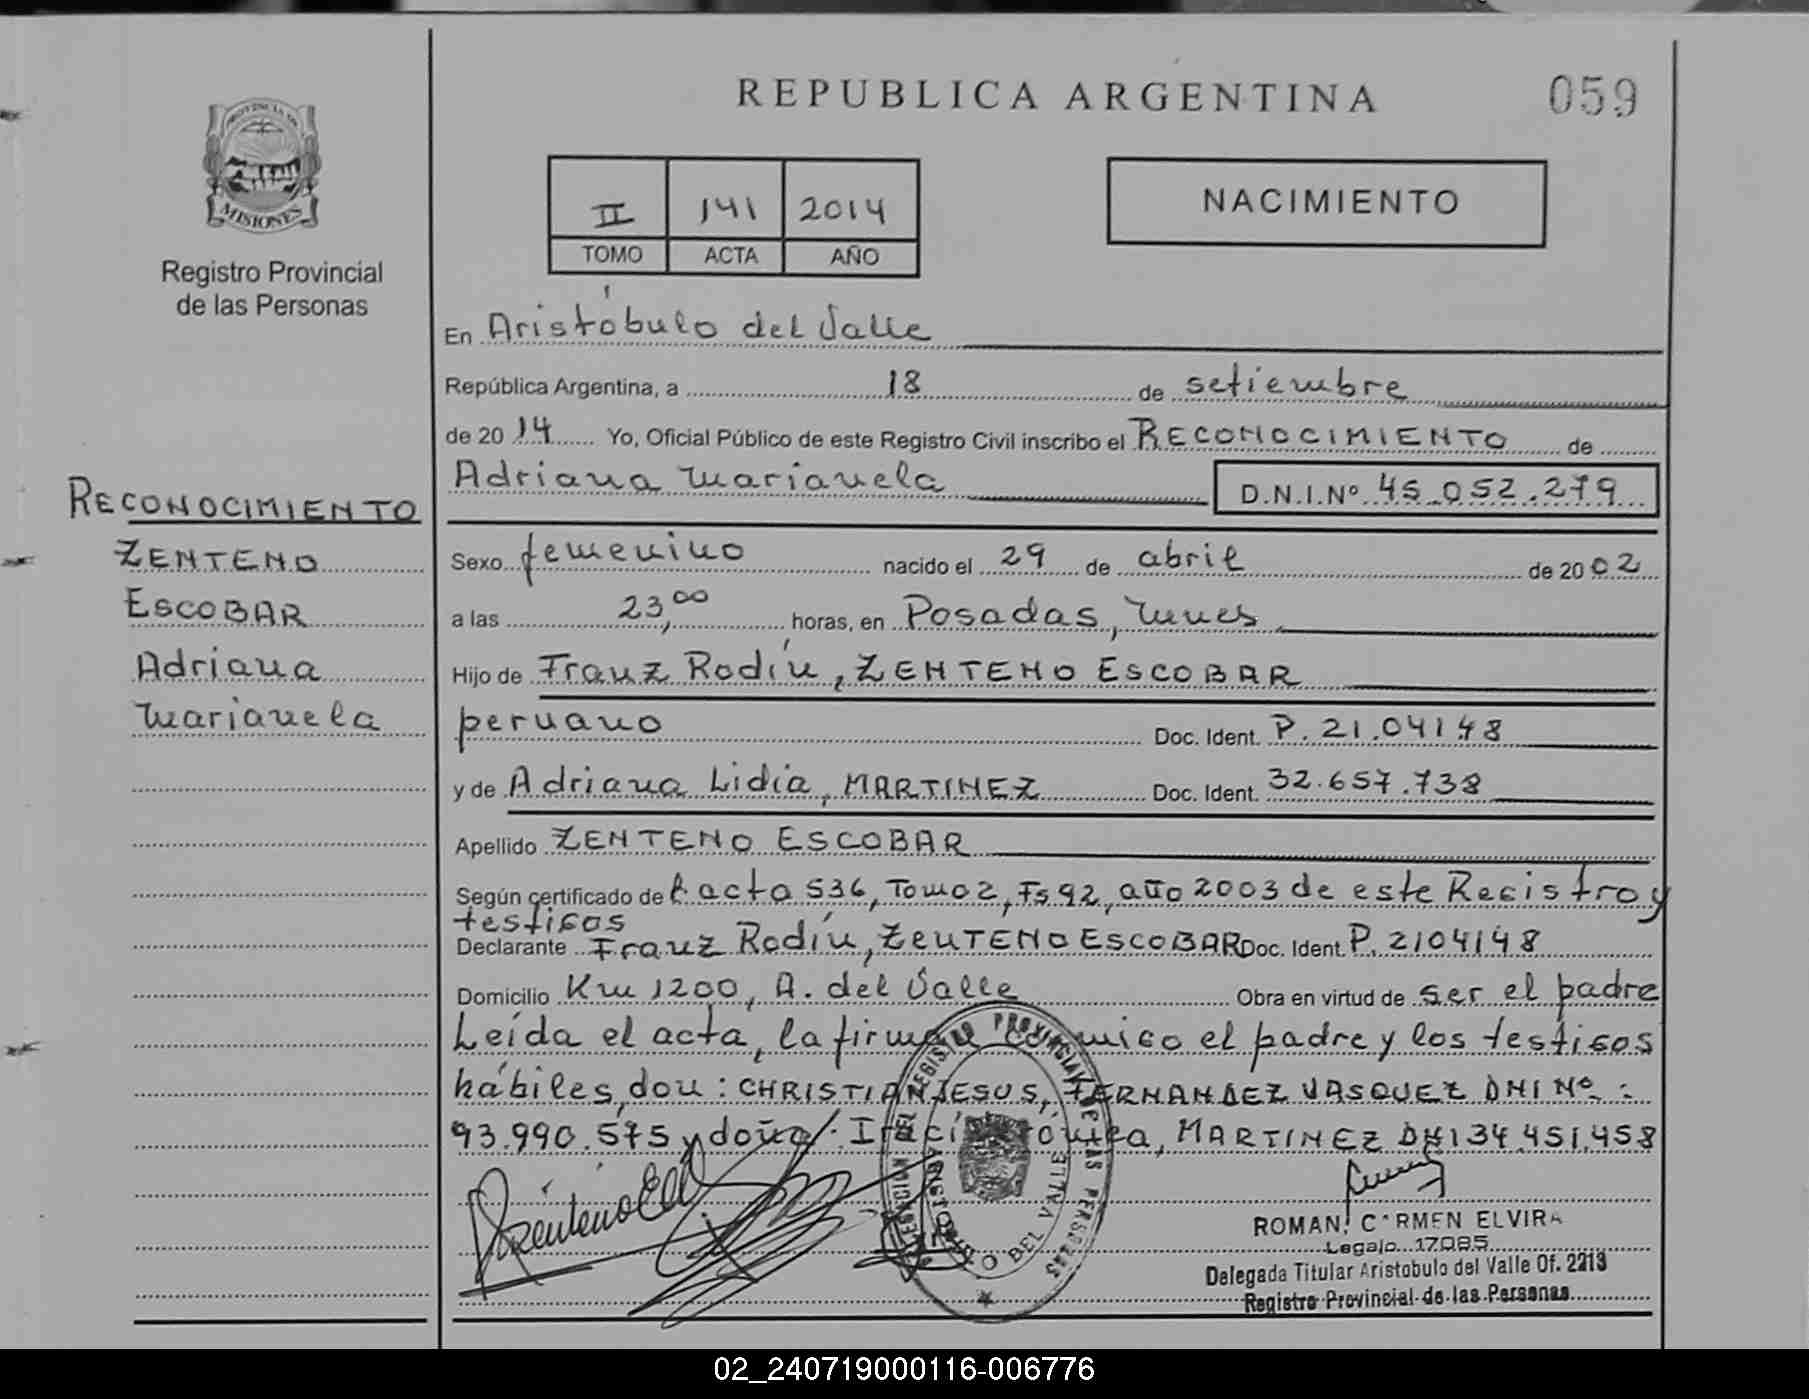 REPUBLICA ARGENTINA
059
PROVINCIA DE
MISIONES
Registro Provincial
de las Personas
II 141 2014
TOMO ACTA AÑO
NACIMIENTO
En Aristóbulo del Valle
República Argentina, a 18 de setiembre
de 2014 Yo, Oficial Público de este Registro Civil inscribo el RECONOCIMIENTO de
Adriana Marianela D.N.I.Nº 45.052.279
RECONOCIMIENTO
ZENTENO
ESCOBAR
Adriana
Marianela
Sexo femenino nacido el 29 de abril de 2002
a las 23,00 horas, en Posadas, Mnes
Hijo de Franz Rodín, ZENTENO ESCOBAR
peruano Doc. Ident. P. 21.04148
y de Adriana Lidia, MARTINEZ Doc. Ident. 32.657.738
Apellido ZENTENO ESCOBAR
Según certificado de acta 536, Tomo 2, Fs 92, año 2003 de este Registro y
testigos
Declarante Franz Rodín, ZENTENO ESCOBAR Doc. Ident. P. 2104148
Domicilio Km 1200, A. del Valle Obra en virtud de ser el padre
Leída el acta, la firma conmigo el padre y los testigos
hábiles, don: CHRISTIAN JESUS, FERNANDEZ VASQUEZ DNI Nº:
93.990.575 y doña: MARTINEZ DNI 34.451.458
DELEGACION DEL REGISTRO PROVINCIAL DE LAS PERSONAS
ARISTOBULO DEL VALLE
ROMAN, CARMEN ELVIRA
Legajo 17085
Delegada Titular Aristobulo del Valle Of. 2213
Registro Provincial de las Personas
02_240719000116-006776